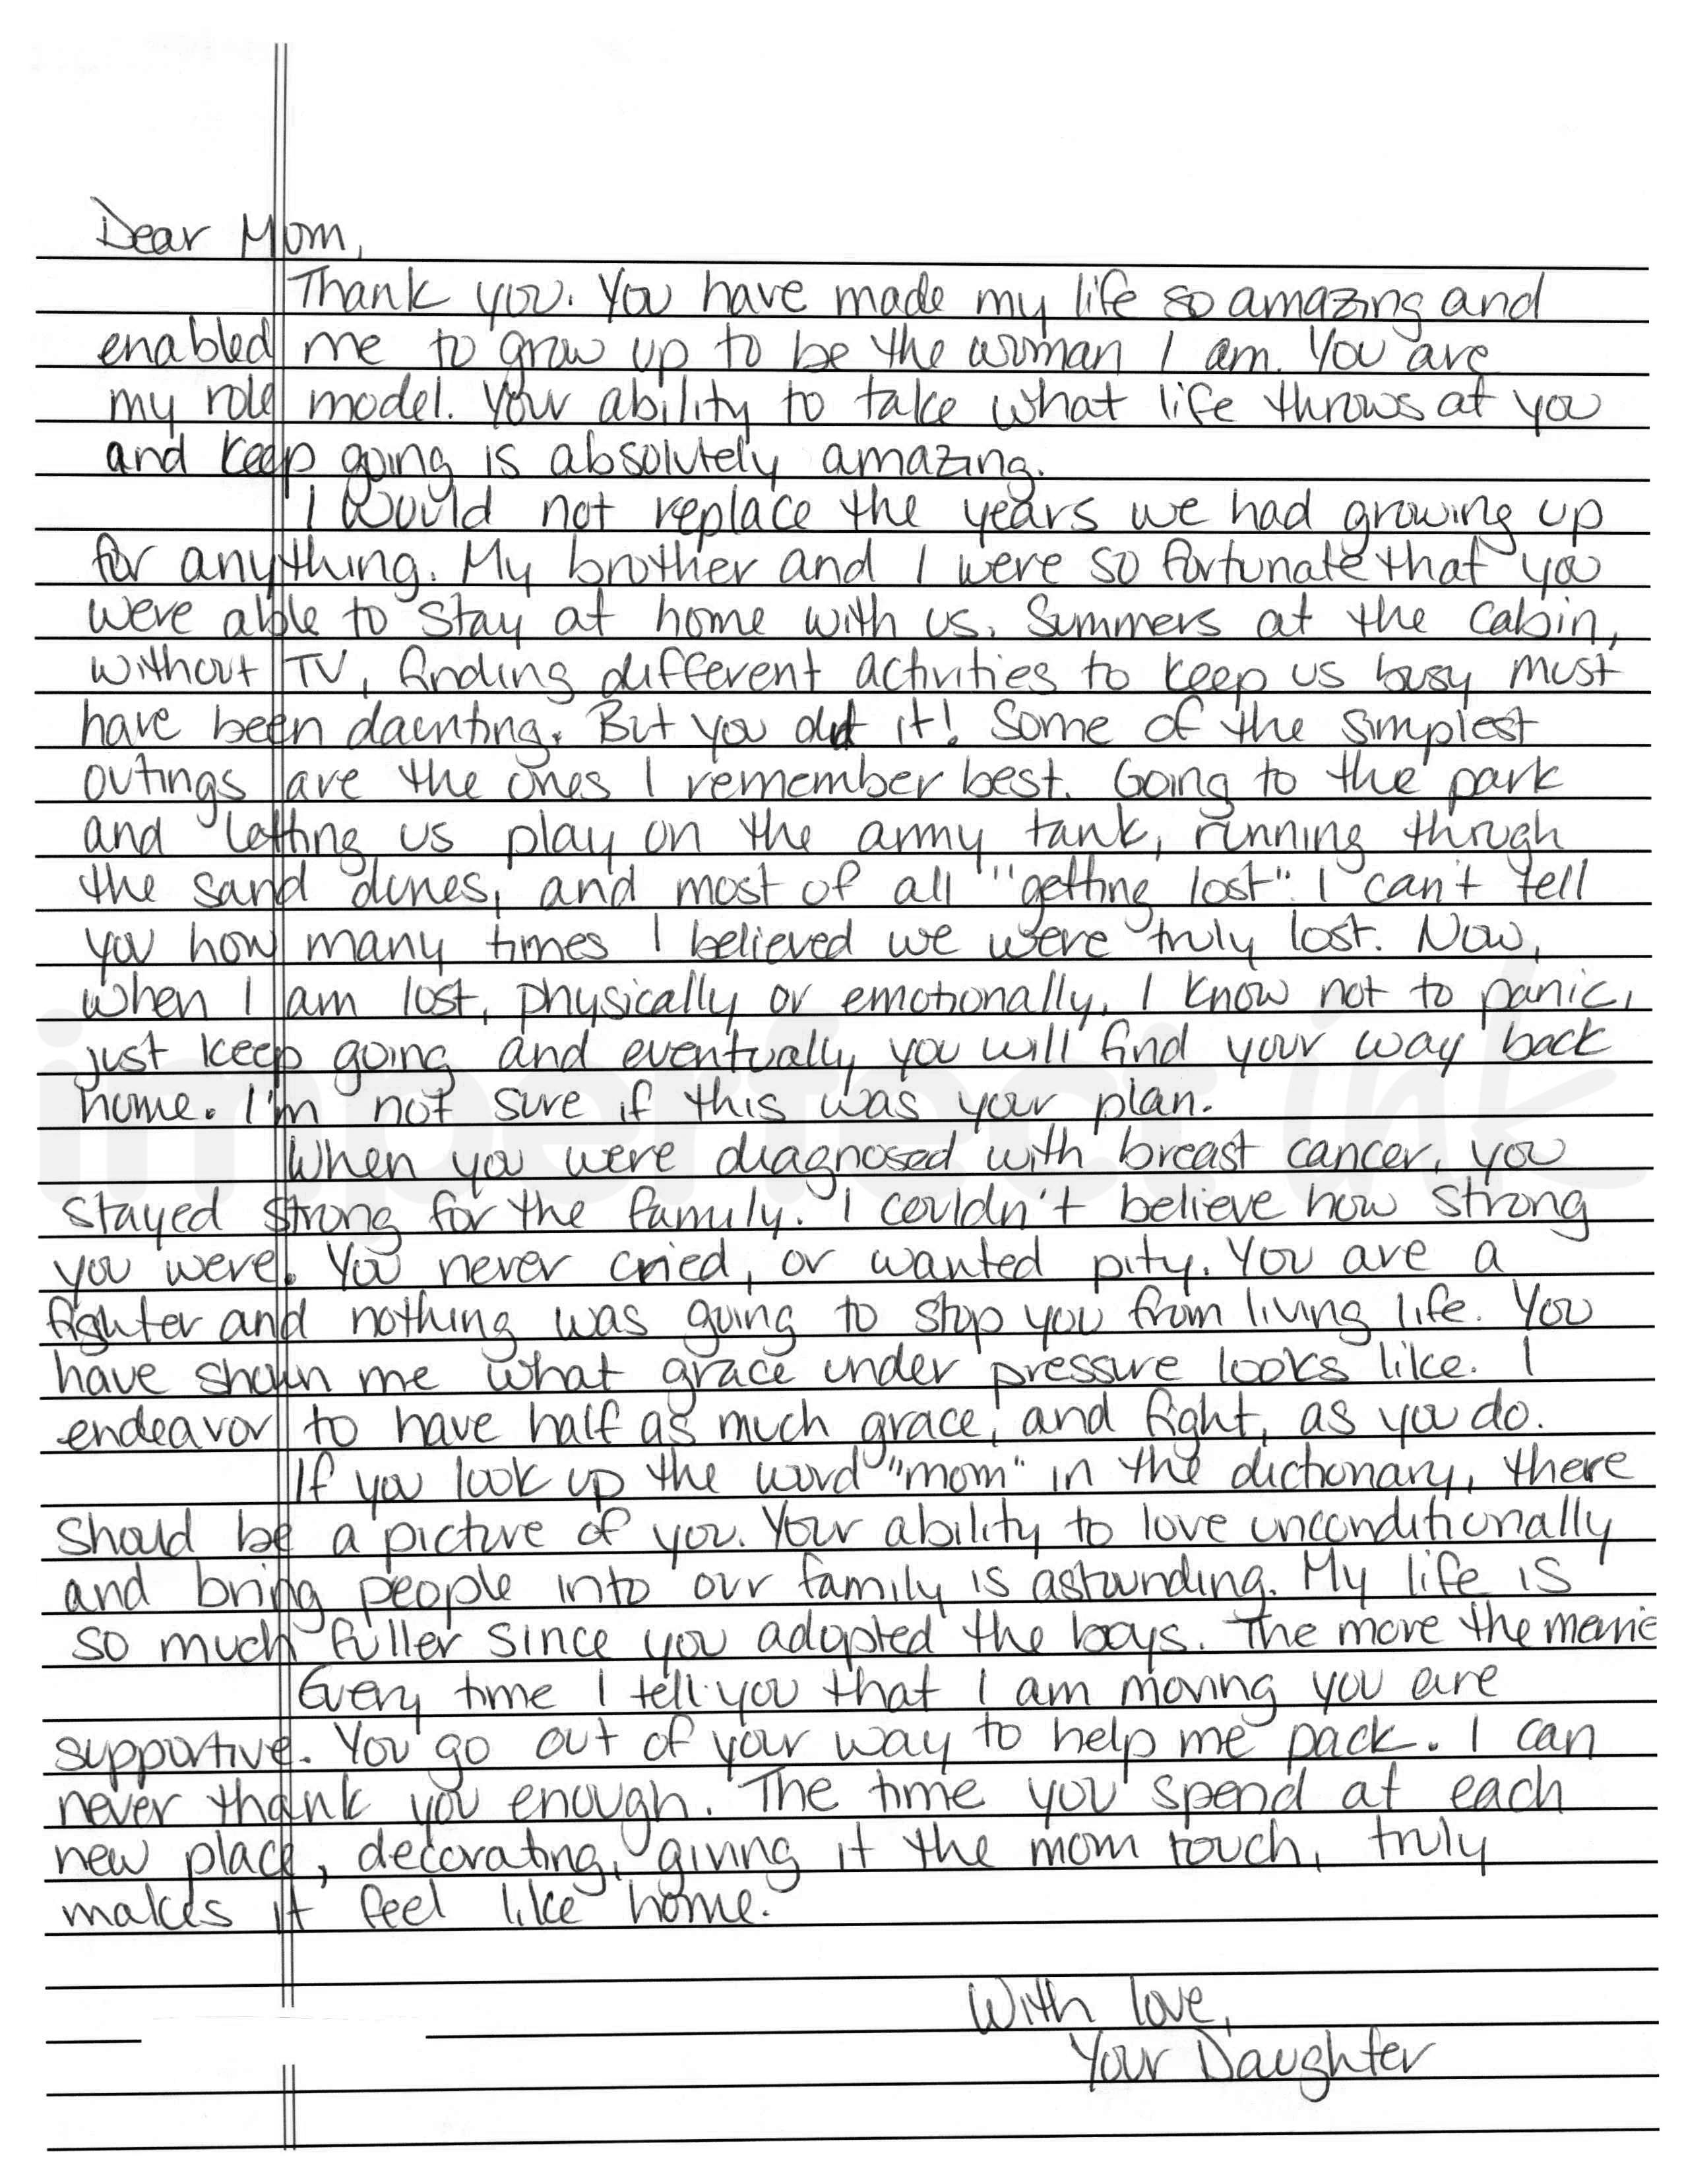 Dear Mom,
Thank you. You have made my life so amazing and
enabled me to grow up to be the woman I am. You are
my role model. Your ability to take what life throws at you
and keep going is absolutely amazing.
I would not replace the years we had growing up
for anything. My brother and I were so fortunate that you
were able to stay at home with us. Summers at the cabin,
without TV, finding different activities to keep us busy must
have been daunting. But you did it! Some of the simplest
outings are the ones I remember best. Going to the park
and letting us play on the army tank, running through
the sand dunes, and most of all "getting lost". I can't tell
you how many times I believed we were truly lost. Now,
when I am lost, physically or emotionally, I know not to panic,
just keep going and eventually you will find your way back
home. I'm not sure if this was your plan.
imperfect ink
When you were diagnosed with breast cancer, you
stayed strong for the family. I couldn't believe how strong
you were. You never cried, or wanted pity. You are a
fighter and nothing was going to stop you from living life. You
have shown me what grace under pressure looks like. I
endeavor to have half as much grace, and fight, as you do.
If you look up the word "mom" in the dictionary, there
should be a picture of you. Your ability to love unconditionally
and bring people into our family is astounding. My life is
so much fuller since you adopted the boys. The more the merrie
Every time I tell you that I am moving you are
supportive. You go out of your way to help me pack. I can
never thank you enough. The time you spend at each
new place, decorating, giving it the mom touch, truly
makes it feel like home.
With love,
Your Daughter